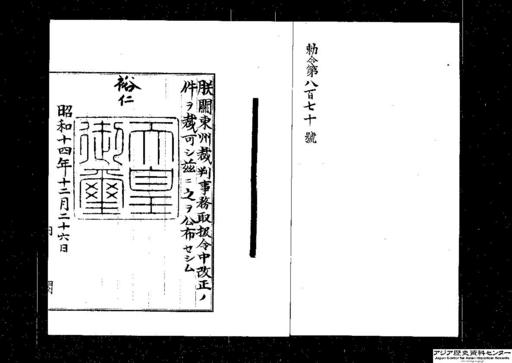 勅令第八百七十號
朕關東州裁判事務取扱令中改正ノ
件ヲ裁可シ茲ニ之ヲ公布セシム
裕仁
天皇
御璽
昭和十四年十二月二十六日
アジア歴史資料センター
Japan Center for Asian Historical Records